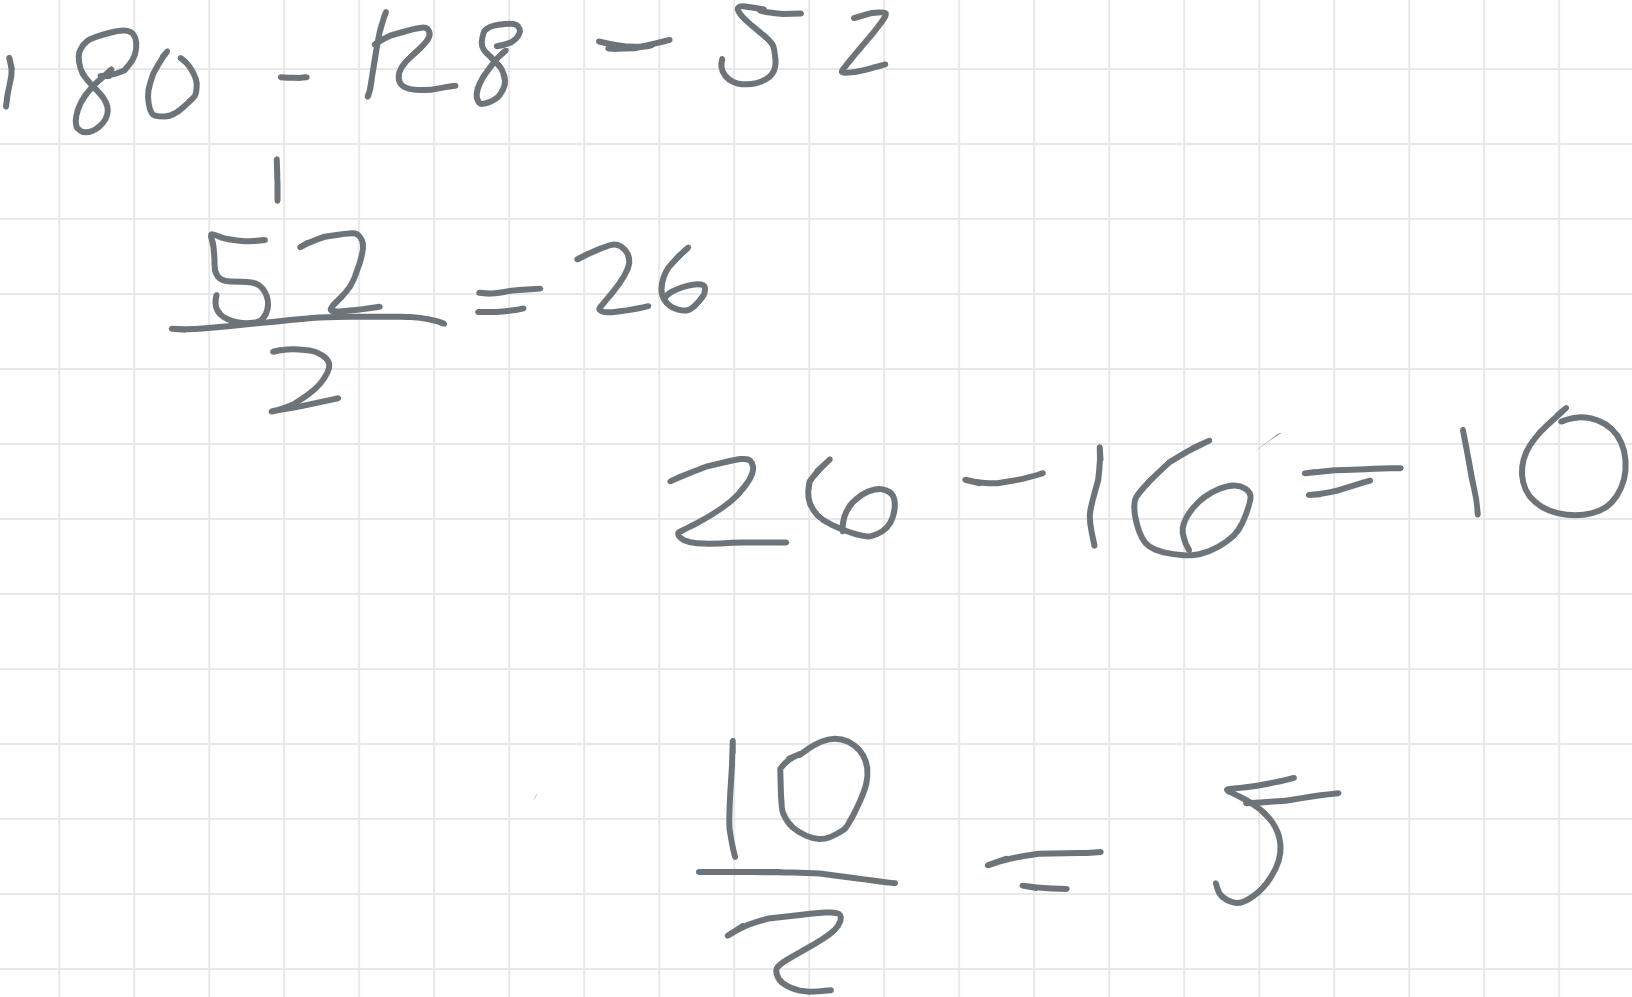 180 - 128 - 52
1
52/2 = 26
26 - 16 = 10
10/2 = 5